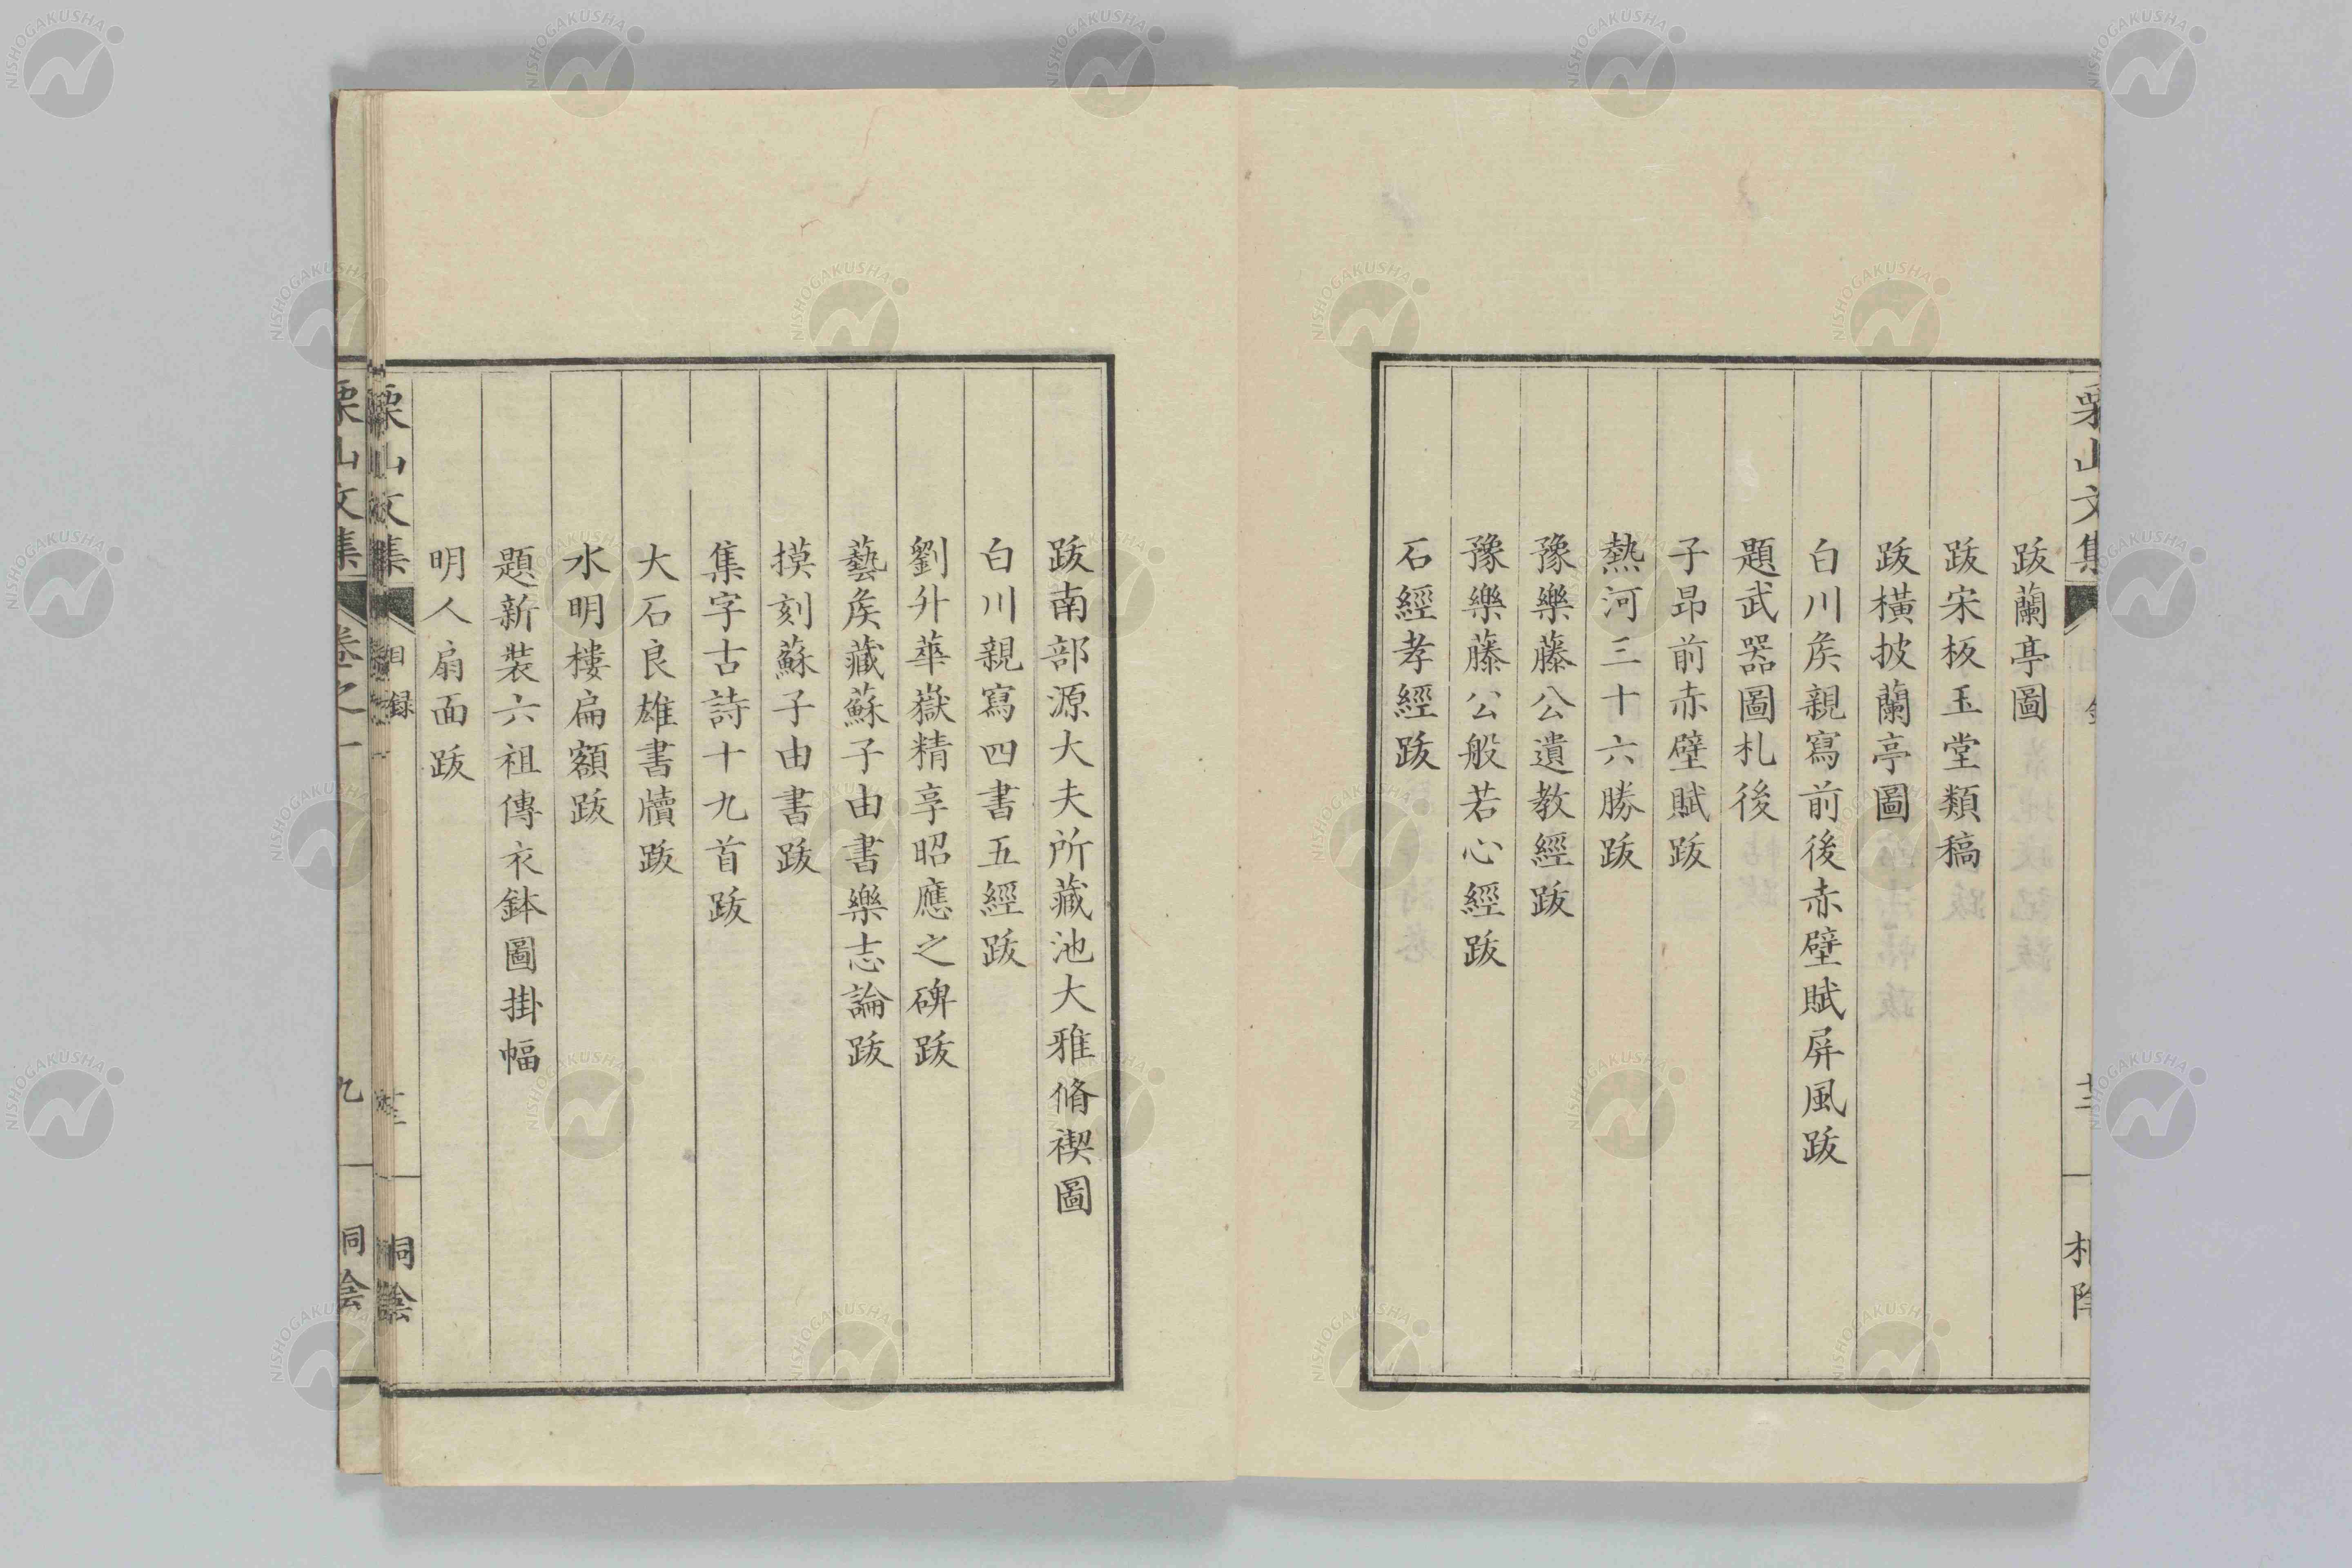 跋蘭亭圖
跋宋板玉堂類稿
跋橫披蘭亭圖
白川矦親寫前後赤壁賦屏風跋
題武器圖札後
子昂前赤壁賦跋
熱河三十六勝跋
豫樂藤公遺教經跋
豫樂藤公般若心經跋
石經孝經跋
跋南部源大夫所藏池大雅脩禊圖
白川親寫四書五經跋
劉升華嶽精享昭應之碑跋
藝矦藏蘇子由書樂志論跋
摸刻蘇子由書跋
集字古詩十九首跋
大石良雄書牘跋
水明樓扁額跋
題新裝六祖傳衣鉢圖掛幅
明人扇面跋
栗山文集
目錄
桐陰
栗山文集
卷之一
九
桐陰
NISHOGAKUSHA